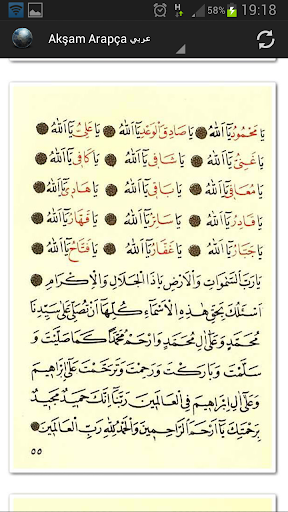 H 58% 19:18
Akşam Arapça عربي
يَا مَحْمُودُ يَا اَللّٰهُ يَا صَادِقَ الْوَعْدِ يَا اَللّٰهُ يَا عَلِىُّ يَا اَللّٰهُ
يَا غَنِىُّ يَا اَللّٰهُ يَا شَافِى يَا اَللّٰهُ يَا كَافِى يَا اَللّٰهُ
يَا مُعَافِى يَا اَللّٰهُ يَا بَاقِى يَا اَللّٰهُ يَا هَادِى يَا اَللّٰهُ
يَا قَادِرُ يَا اَللّٰهُ يَا سَاتِرُ يَا اَللّٰهُ يَا قَهَّارُ يَا اَللّٰهُ
يَا جَبَّارُ يَا اَللّٰهُ يَا غَفَّارُ يَا اَللّٰهُ يَا فَتَّاحُ يَا اَللّٰهُ
يَا رَبَّ السَّمٰوَاتِ وَالْاَرْضِ يَا ذَا الْجَلَالِ وَالْاِكْرَامِ
اَسْئَلُكَ بِحَقِّ هٰذِهِ الْاَسْمَاءِ كُلِّهَا اَنْ تُصَلِّىَ عَلٰى سَيِّدِنَا
مُحَمَّدٍ وَعَلٰى اٰلِ مُحَمَّدٍ وَارْحَمْ مُحَمَّدًا كَمَا صَلَّيْتَ وَ
سَلَّمْتَ وَبَارَكْتَ وَرَحِمْتَ وَتَرَحَّمْتَ عَلٰى اِبْرَاهِيمَ
وَعَلٰى اٰلِ اِبْرَاهِيمَ فِى الْعَالَمِينَ رَبَّنَا اِنَّكَ حَمِيدٌ مَجِيدٌ
بِرَحْمَتِكَ يَا اَرْحَمَ الرَّاحِمِينَ وَالْحَمْدُ لِلّٰهِ رَبِّ الْعَالَمِينَ
٥٥